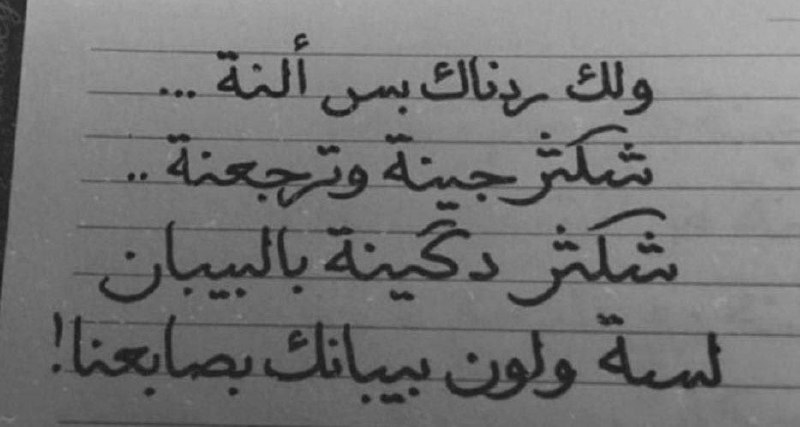 ولك ردناك بس ألنة ...
شكثر جينة وترجعنة ..
شكثر دگينة بالبيبان
لسة ولون بيبانك بصابعنا!